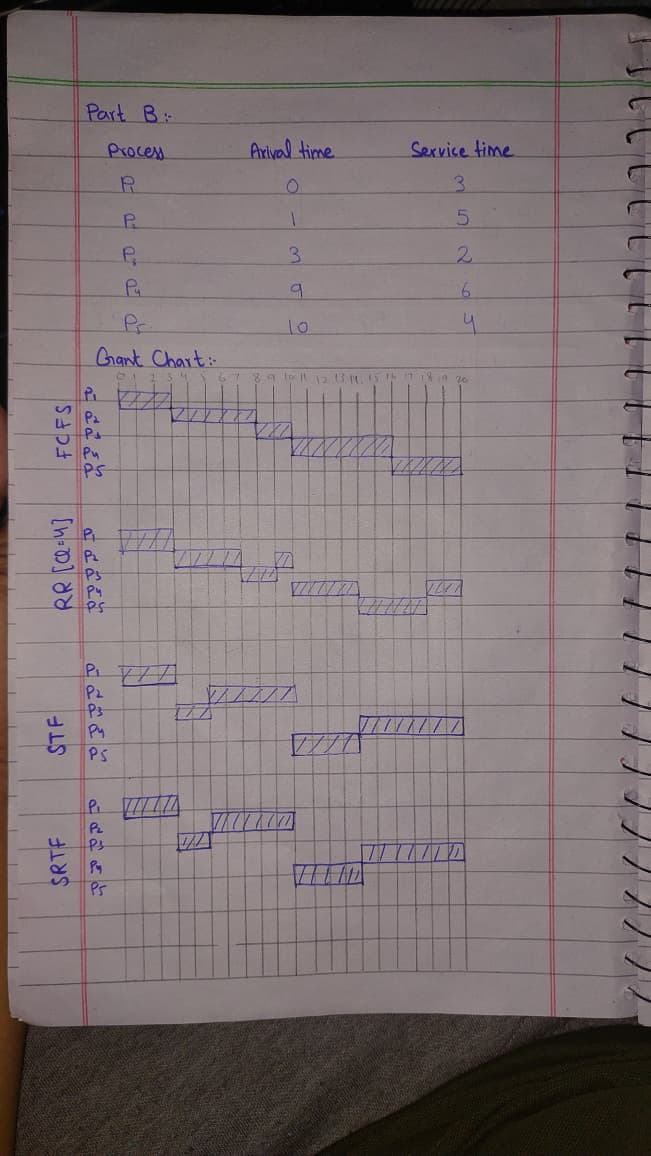 Part B :-
Process Arival time Service time
P1 0 3
P2 1 5
P3 3 2
P4 9 6
P5 10 4
Gnant Chart :-
0 1 2 3 4 5 6 7 8 9 10 11 12 13 14 15 16 17 18 19 20
FCFS
P1
P2
P3
P4
P5
RR [Q=4]
P1
P2
P3
P4
P5
STF
P1
P2
P3
P4
P5
SRTF
P1
P2
P3
P4
P5